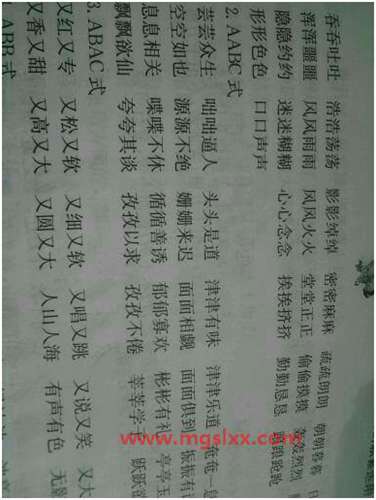 吞吞吐吐 浩浩荡荡 影影绰绰 密密麻麻 疏疏朗朗 朝朝暮暮
浑浑噩噩 风风雨雨 风风火火 堂堂正正 偷偷摸摸 轰轰烈烈
隐隐约约 迷迷糊糊 心心念念 挨挨挤挤 勤勤恳恳
形形色色 口口声声
2. AABC 式
芸芸众生 咄咄逼人 头头是道 津津有味 津津乐道 奄奄一
空空如也 源源不绝 姗姗来迟 面面相觑 面面俱到 振振有
息息相关 喋喋不休 循循善诱 郁郁寡欢 彬彬有礼 亭亭玉
飘飘欲仙 夸夸其谈 孜孜以求 孜孜不倦 莘莘学子 跃跃欲
3. ABAC 式
又红又专 又松又软 又细又软 又唱又跳 又说又笑 又大
又香又甜 又高又大 又圆又大 人山人海 有声有色 无
ABB式
www.mgslxx.com